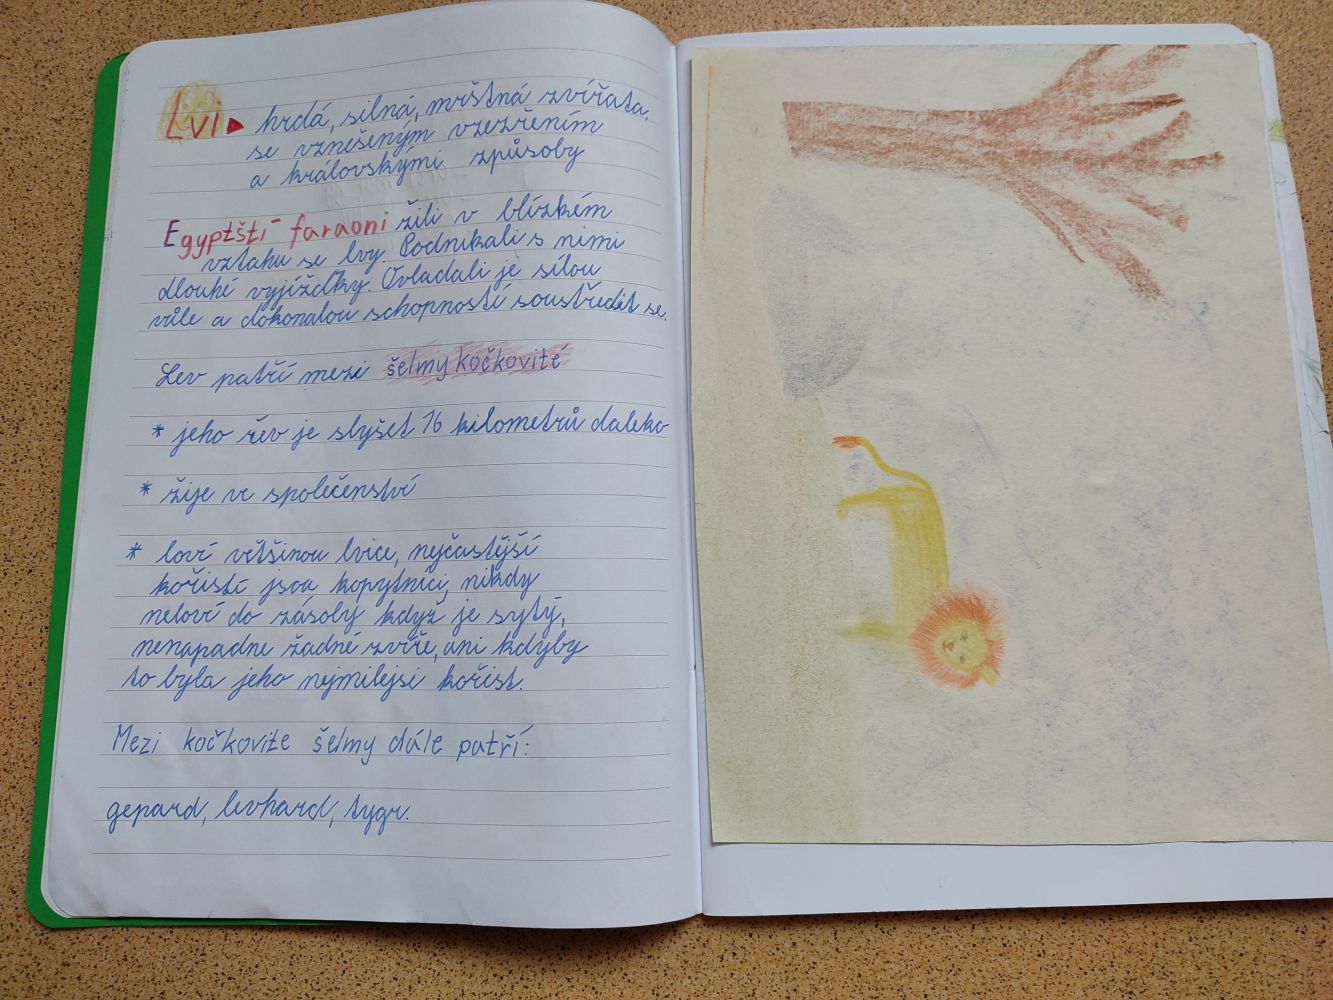 Lvi ▶ hrdá, silná, mrštná zvířata.
se vznešeným vzezřením
a královskými způsoby
Egyptští faraoni žili v blízkém
vztahu se lvy. Podnikali s nimi
dlouhé vyjížďky. Ovladali je sílou
vůle a dokonalou schopností soustředit se.
Lev patří mezi šelmy kočkovité
* jeho řev je slyšet 16 kilometrů daleko
* žije ve společenství
* loví většinou lvice, nejčastější
kořistí jsou kopytníci, nikdy
neloví do zásoby když je sytý,
nenapadne žádné zvíře, ani kdyby
to byla jeho nejmilejsi kořist.
Mezi kočkovite šelmy dále patří:
gepard, levhard, tygr.